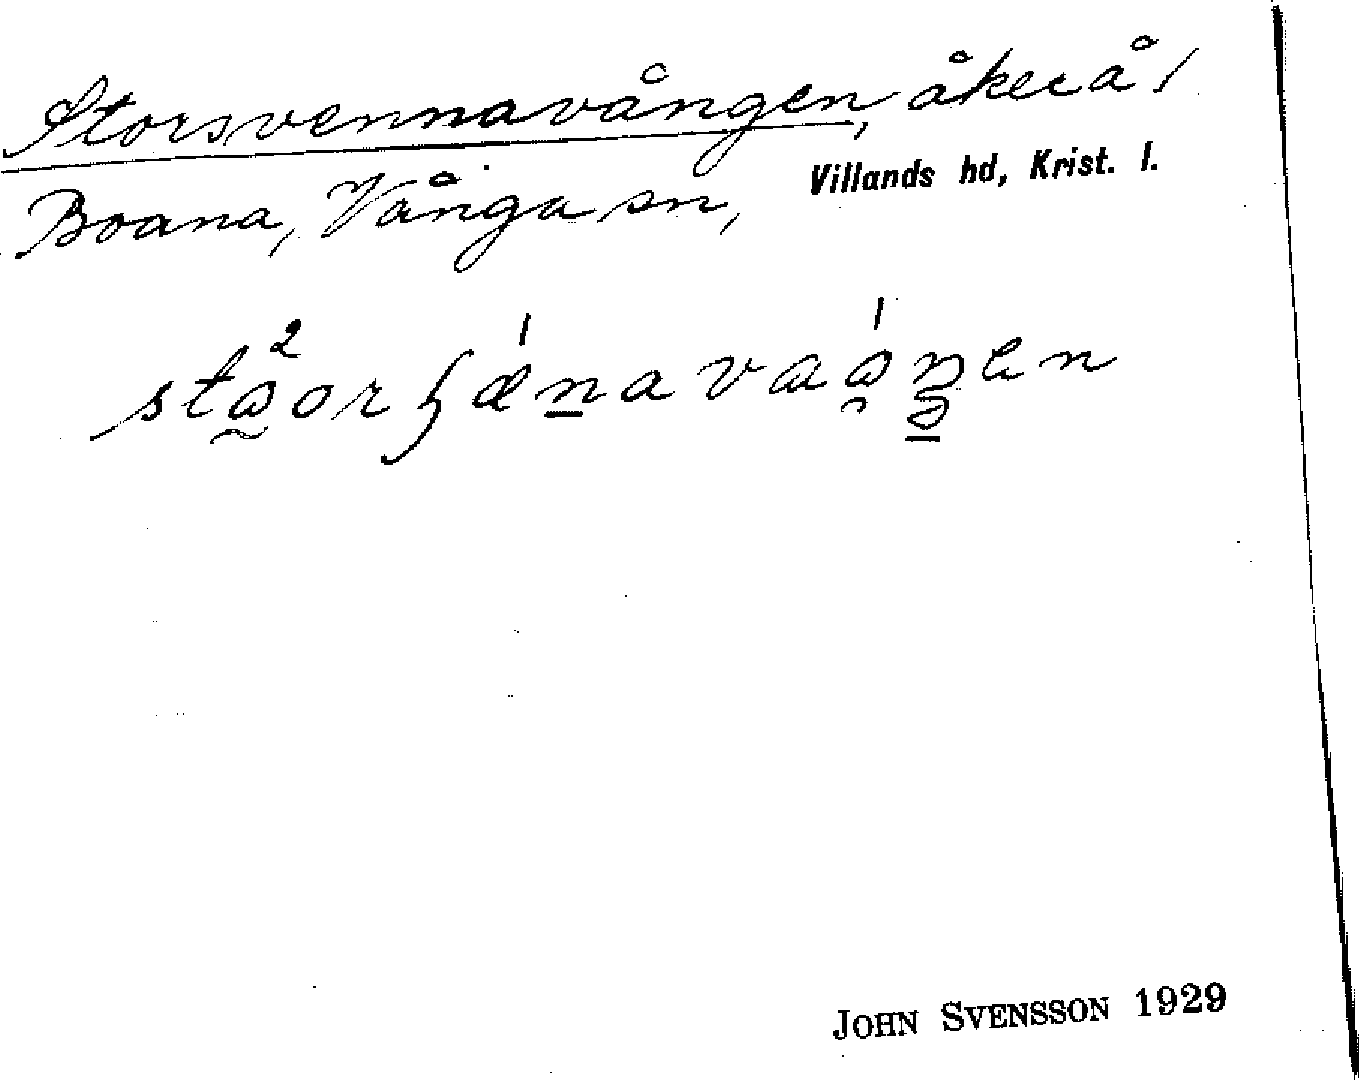 Storsvennavången, åker å
Boana, Vånga sn, Villands hd, Krist. l.
JOHN SVENSSON 1929